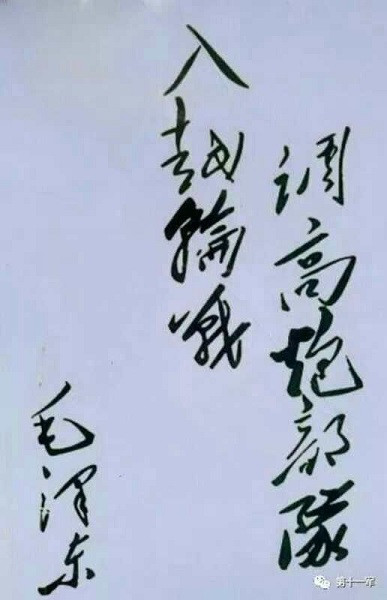 调高炮部隊
入越輪战
毛泽东
第十一军